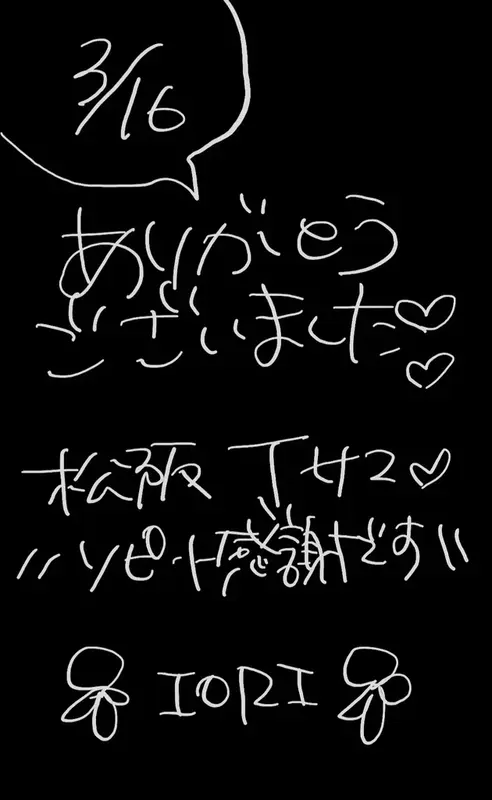 3/16
ありがとう
ございました♡♡
松阪 Tサマ♡
リピート感謝です
IORI